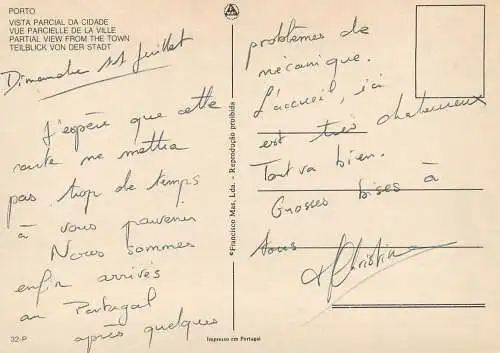 PORTO
VISTA PARCIAL DA CIDADE
VUE PARCIELLE DE LA VILLE
PARTIAL VIEW FROM THE TOWN
TEILBLICK VON DER STADT
Dimanche 11 Juillet
J'espère que cette
carte ne mettra
pas trop de temps
à vous parvenir
Nous sommes
enfin arrivés
au Portugal
après quelques
32-P
©Francisco Mas, Lda. - Reprodução proibida
Impresso em Portugal
problèmes de
mécanique.
L'accueil, ici
est très chaleureux
Tout va bien.
Grosses bises à
tous
Christian